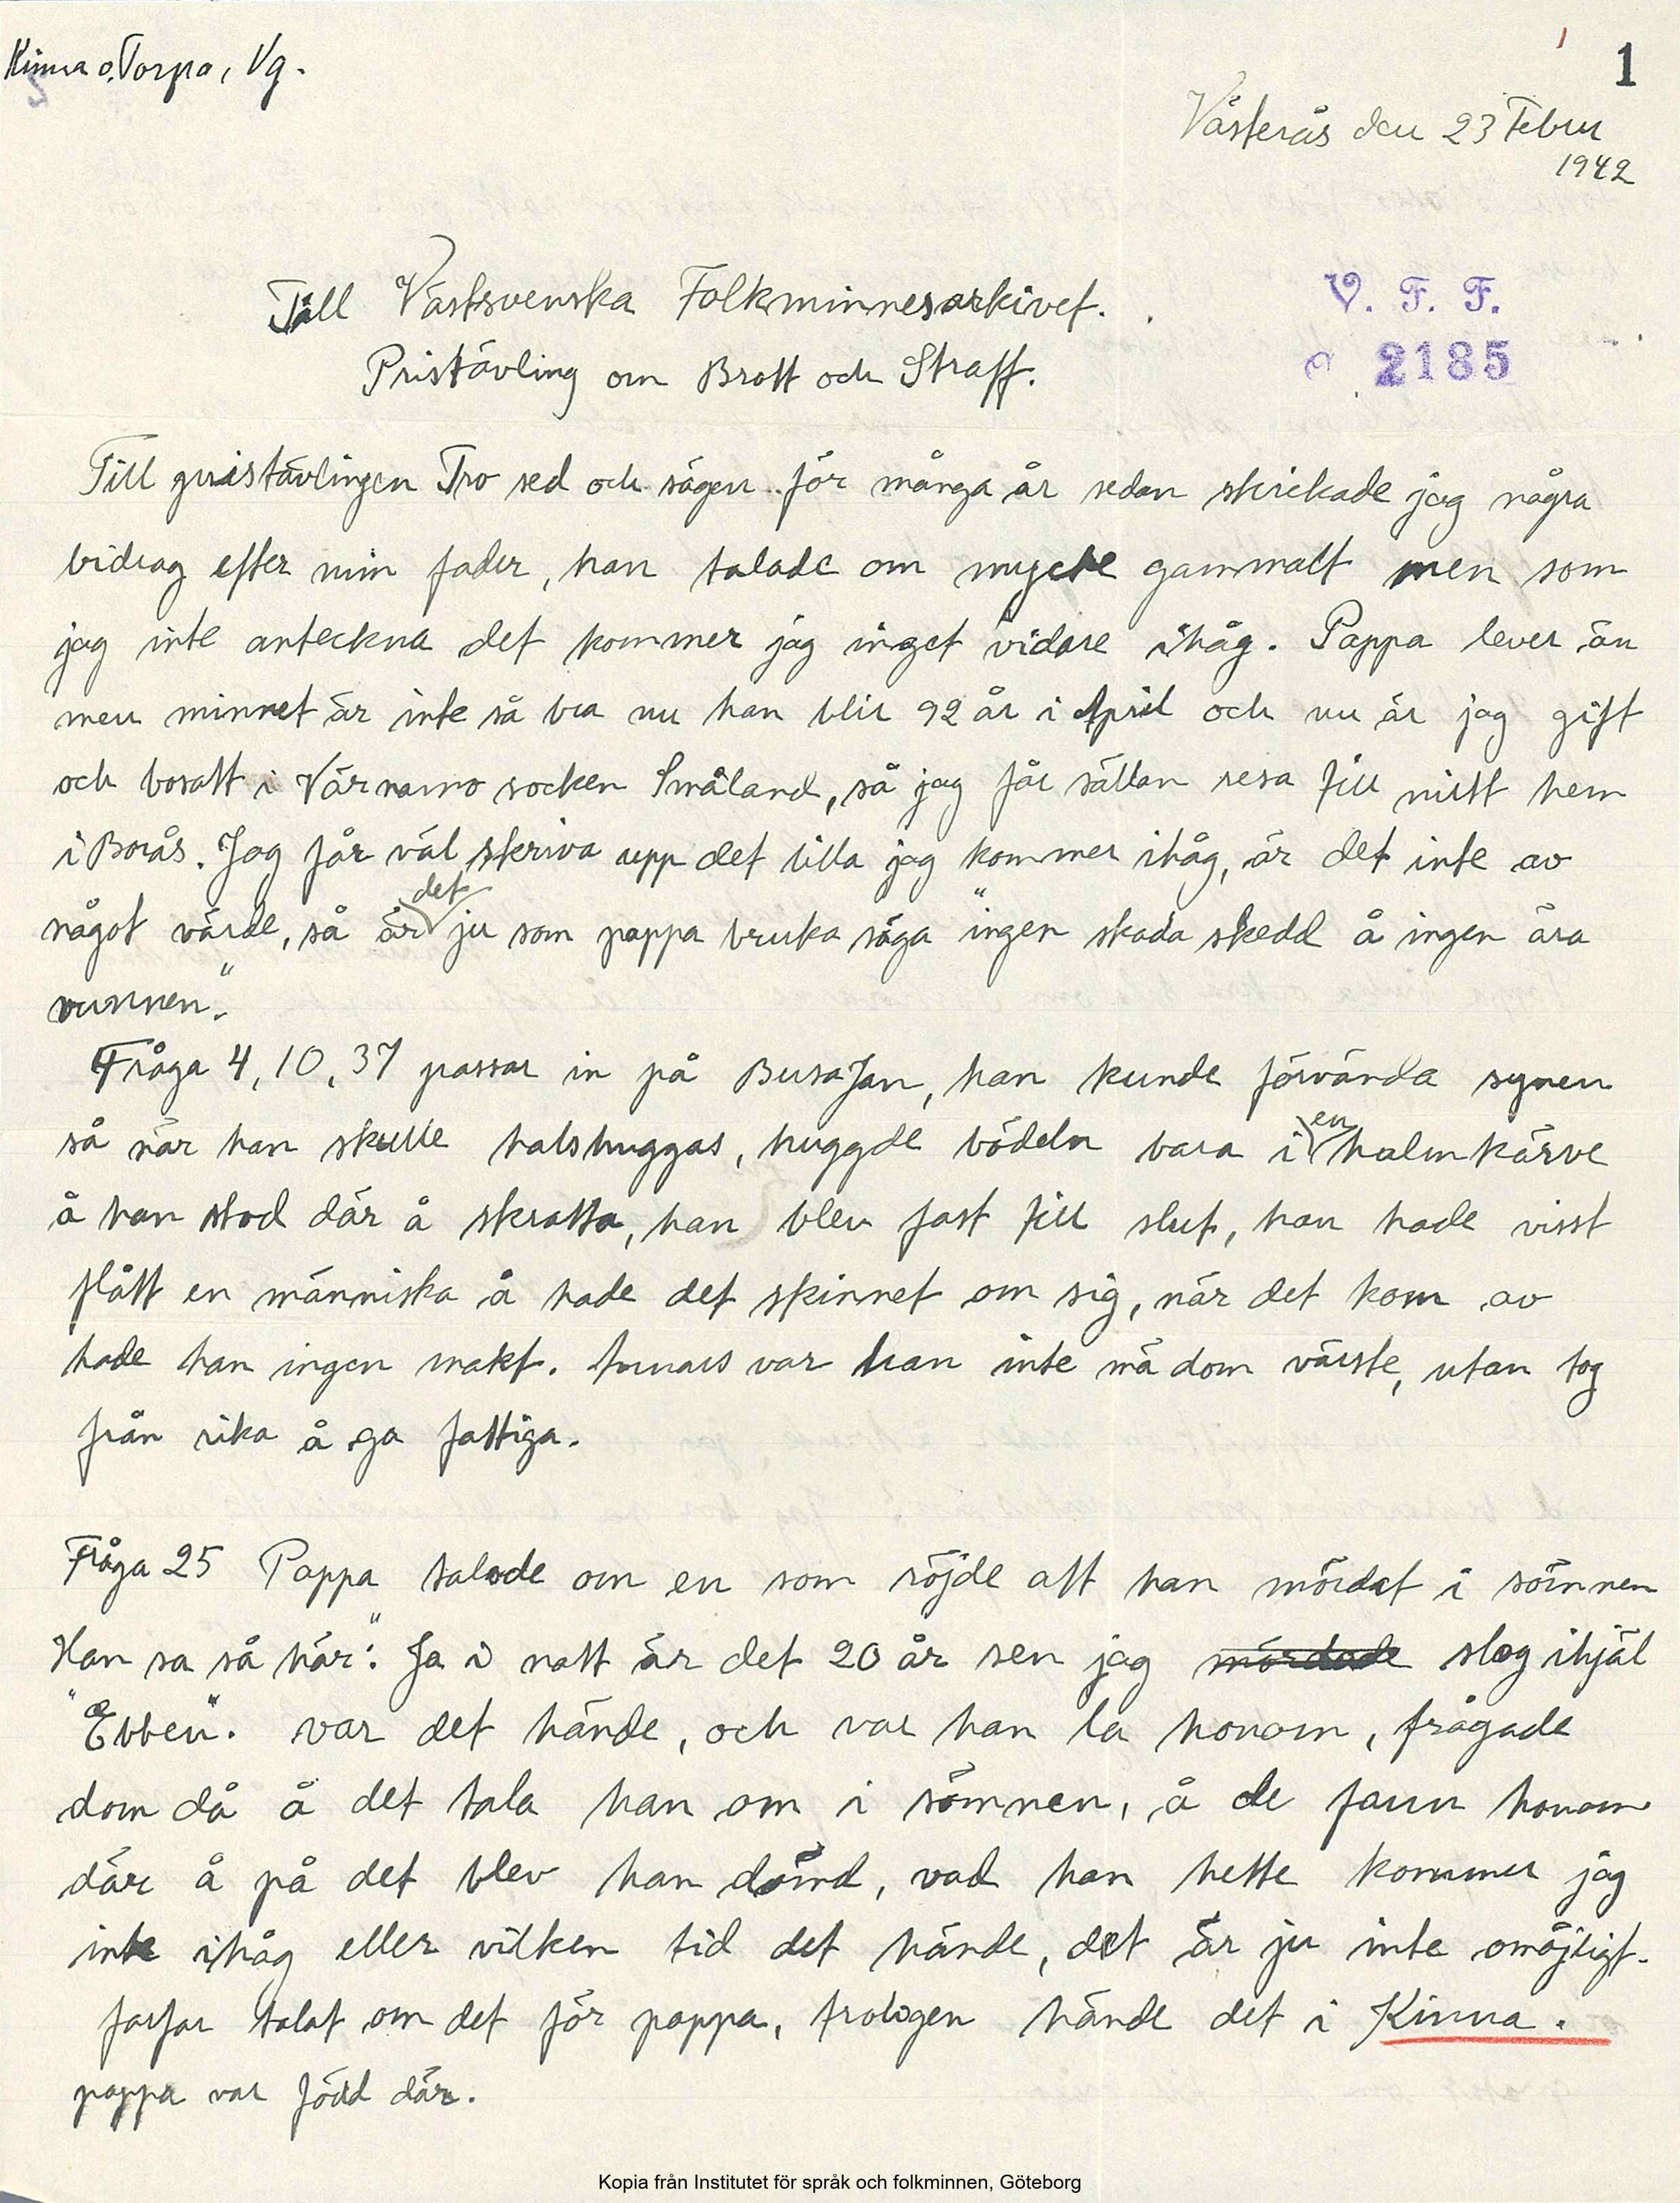 Kinna o. Torpa, Vg.
1
Västerås den 23 Febru
1942
Till Västsvenska Folkminnesarkivet.
V. F. F.
Pristävling om Brott och Straff.
2185
Till pristävlingen Tro sed och sägen för många år sedan skickade jag några
bidrag efter min fader, han talade om mycke gammalt men som
jag inte anteckna det kommer jag inget vidare ihåg. Pappa lever än
men minnet är inte så bra nu han blir 92 år i April och nu är jag gift
och bosatt i Värnamo socken Småland, så jag får sällan resa till mitt hem
i Borås. Jag får väl skriva upp det lilla jag kommer ihåg, är det inte av
något värde, så är det ju som pappa bruka säga "ingen skada skedd å ingen ära
vunnen".
Fråga 4, 10, 37 passar in på BusaJan, han kunde förvända synen
så när han skulle halshuggas, huggde bödeln bara i en halmkärve
å han stod där å skratta, han blev fast till slut, han hade visst
flått en människa å hade det skinnet om sig, när det kom av
hade han ingen makt. Annars var han inte mä dom värste, utan tog
från rika å ga fattiga.
Fråga 25 Pappa talade om en som röjde att han mördat i sömnen
Han sa så här: "Ja i natt är det 20 år sen jag mördade slog ihjäl
"Ebben". var det hände, och var han la honom, frågade
dom då å det tala han om i sömnen, å de fann honom
där å på det blev han dömd, vad han hette kommer jag
inte ihåg eller vilken tid det hände, det är ju inte omöjligt
farfar talat om det för pappa, troligen hände det i Kinna.
pappa var född där.
Kopia från Institutet för språk och folkminnen, Göteborg